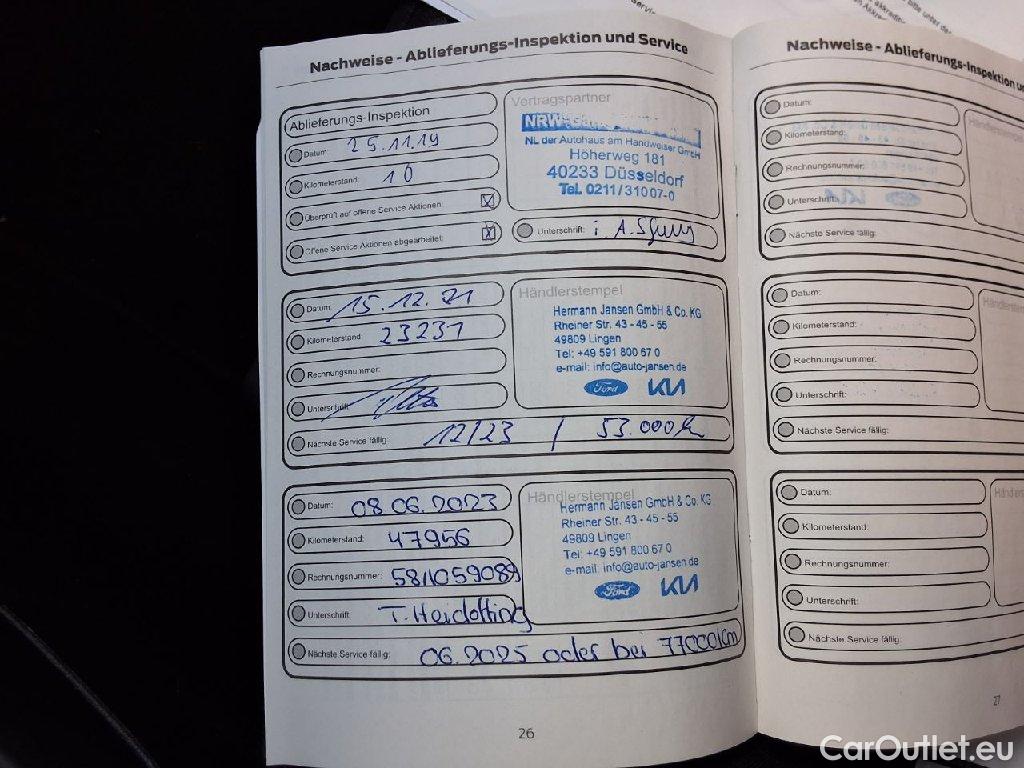 Nachweise - Ablieferungs-Inspektion und Service
Ablieferungs-Inspektion
Datum: 25.11.19
Kilometerstand: 10
Überprüft auf offene Service Aktionen: X
Offene Service Aktionen abgearbeitet: X
Vertragspartner
NRW-
NL der Autohaus am Handweiser GmbH
Höherweg 181
40233 Düsseldorf
Tel. 0211/310 07-0
Unterschrift: i. A.
Datum: 15.12.21
Kilometerstand: 23231
Rechnungsnummer:
Unterschrift:
Nächste Service fällig: 12/23 / 53.000 km
Händlerstempel
Hermann Jansen GmbH & Co. KG
Rheiner Str. 43 - 45 - 55
49809 Lingen
Tel: +49 591 800 67 0
e-mail: info@auto-jansen.de
Ford KIA
Datum: 08.06.2023
Kilometerstand: 47956
Rechnungsnummer: 5811059089
Unterschrift: T.
Nächste Service fällig: 06.2025 oder bei 77000km
Händlerstempel
Hermann Jansen GmbH & Co. KG
Rheiner Str. 43 - 45 - 55
49809 Lingen
Tel: +49 591 800 67 0
e-mail: info@auto-jansen.de
Ford KIA
26
Nachweise - Ablieferungs-Inspektion u
Datum:
Kilometerstand:
Rechnungsnummer:
Unterschrift:
Nächste Service fällig:
Händlerstempel
Datum:
Kilometerstand:
Rechnungsnummer:
Unterschrift:
Nächste Service fällig:
Datum:
Kilometerstand:
Rechnungsnummer:
Unterschrift:
Nächste Service fällig:
27
CarOutlet.eu